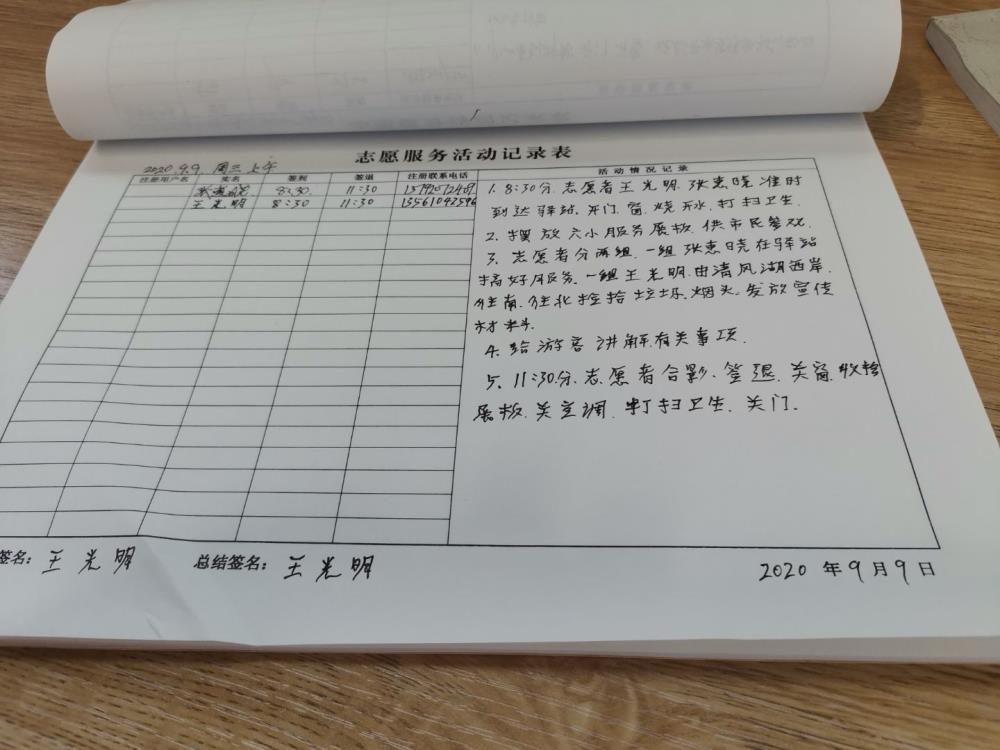 志愿服务活动记录表
2020.9.9 周三上午
注册用户名 实名 签到 签退 注册联系电话 活动情况记录
8:30 11:30
王光明 8:30 11:30
1. 8:30分.志愿者王光明.张惠晓准时
到达驿站.开门.窗.烧开水.打扫卫生.
2. 摆放六小服务展板.供市民参观.
3. 志愿者分两组.一组张惠晓在驿站
搞好服务.一组王光明.由清风湖西岸.
往南.往北捡拾垃圾.烟头.发放宣传
材料.
4. 给游客讲解有关事项.
5. 11:30分.志愿者合影.签退.关窗.收拾
展板.关空调.打扫卫生.关门.
签名: 王光明 总结签名: 王光明 2020年9月9日